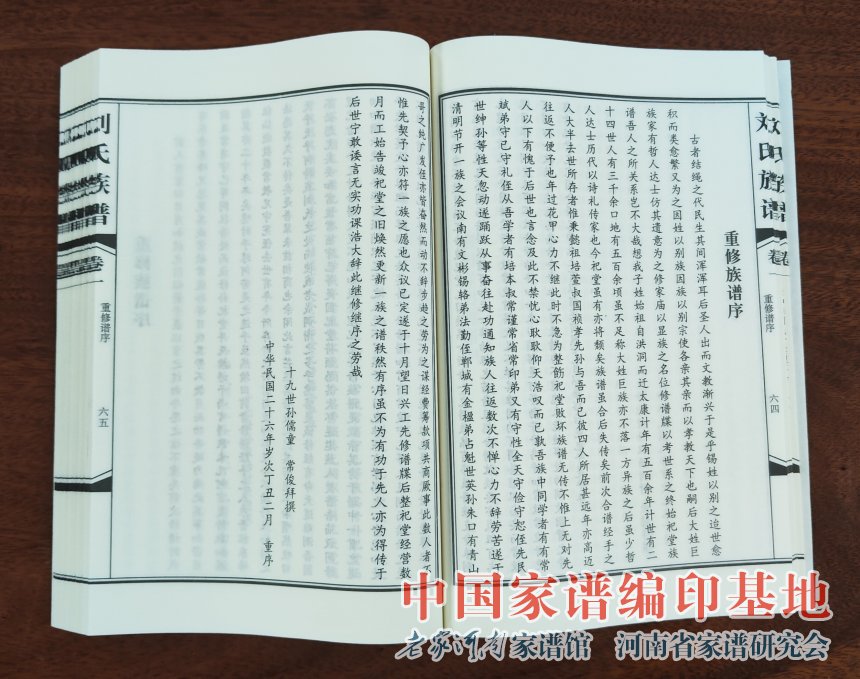 刘氏族谱
卷一
重修谱序
六四
重修族谱序
古者结绳之代民生其间浑浑耳后圣人出而文教渐兴于是乎锡姓以别之迨世愈
积而类愈繁又为之因姓以别族因族以别宗使各亲其亲而以孝教天下也嗣后大姓巨
族家有哲人达士仿其遗意为之修家庙以显族之名位修谱牒以考世系之终始祀堂族
谱吾人之所关岂不大哉想我于姓始祖自洪洞而迁太康计年有五百余年计世有二
十四世人有三千余口地有五百余顷虽不足称大姓巨族亦不落一方异族之后虽少哲
人达士历代以诗礼传家也今祀堂虽有亦将颓矣族谱虽合后失传矣前次合谱经手之
人大半去世所存者惟秉懿祖培萱叔国桢孝先孙与吾而已彼四人所居甚远年亦高迈
往返不便予也年过花甲心力不继此时不急为整饬祀堂败坏族谱无传不惟上无对先
人以下有愧于后世也言念及此不禁忧心耿耿仰天浩叹而已孰吾族中同学者有有常
斌弟守已守礼侄从吾学者有培本叔常谨常省常印弟又有守性全天守俭守恕侄先民
世绅孙等性天忽动遂踊跃从事奋往赴功通知族人往返数次不惮心力不辞劳苦遂于
清明节开一族之会议南有文彬锡辂弟法勤侄郸城有金榅弟占魁世英孙朱口有青山
哥之纯广发侄亦皆奋然而动不辞步趋之劳为之谋经费筹款项共商厥事此数人者不
惟先契予心亦符一族之愿也众议已定遂于十月望日兴工先修谱牒后整祀堂经营数
月而工始告竣祀堂之旧焕然更新一族之谱秩然有序虽不为有功于先人亦为得传于
后世宁敢诿言无实功课浩大辞此继修继序之劳哉
十九世孙儒童 常俊拜撰
中华民国二十六年岁次丁丑二月 重序
刘氏族谱
卷一
重修谱序
六五
中国家谱编印基地
老家河南家谱馆 河南省家谱研究会